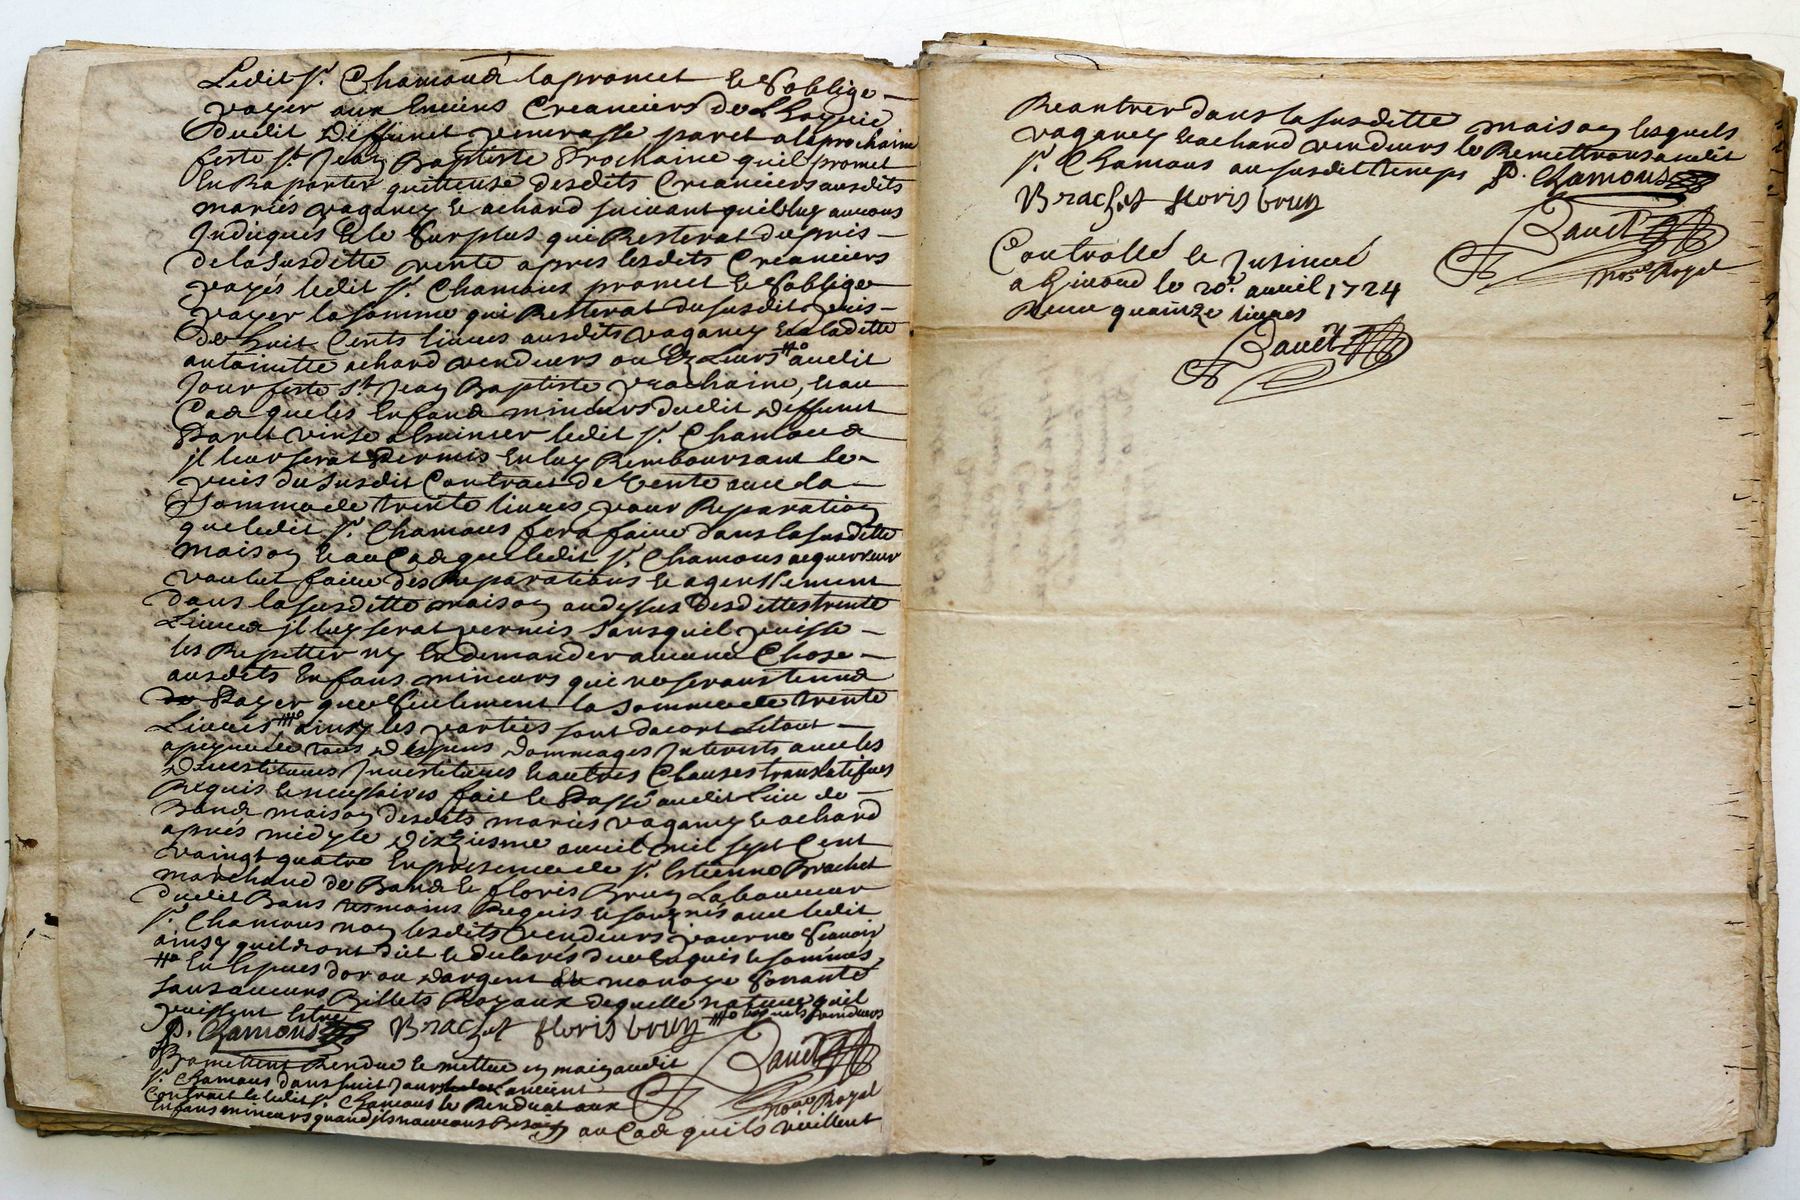 Ledit Sr. Chamoud la promet et s'obblige
payer aux enciens Creanciers de L hoyrie
dudit deffunct paret a la prochaine
feste st. Jean Baptiste Prochaine quil promet
En Raporter quittense desdits Creanciers ausdits
mariés vaganey et achard suivant quil luy auront
Indiqués Et le Surplus qui Resterat du pris
de la susditte vente apres lesdits Creanciers
payés ledit Sr. Chamous promet et s'obblige
payer la somme qui Resterat du susdit prix
de huit Cents liures ausdits vaganey Et a laditte
antoinette achard vendeurs ou Ez Leurs audit
Jour feste St. Jean Baptiste prochaine, et au
Cas que les Enfand mineurs dudit deffunct
Paret vinse a ledit Sr. Chamoud
jl leur serat Permis En luy Remboursant le
prix du susdit Contrait de Vente auec la
Somme de trente liures pour Reparation
que ledit Sr. Chamous fera faire dans la susditte
maison et au Cas que ledit Sr. Chamous acquerreur
voulut faire des Reparations et agensement
dans la susditte maison au dessus desdittes trente
Liures jl luy serat permis sans quil puisse
les Repetter ny En demander aucune Chose
ausdits Enfans mineurs qui ne seront tenus
de Payer que seulement la somme de trente
Liures Ainsy les parties sont dacort Letout
a peyne de tous despens dommages Interests auec les
Inuestitures et autres Clauses translatifues
Requis et necessaires fait et Passé audit Lieu de
Band maison desdits mariés vaganey et achard
après midy le dixiesme auril mil sept Cent
vaingt quatre En presence de Sr. Estienne Brachet
marchand de Band et floris Bruy Laboureur
dudit Bans tesmoins Requis et soussignés auec ledit
Sr. Chamous non lesdits vendeurs pour ne sçauoir
ainsy quil dront dit et declarés de ce Enquis et sommés
En Espèces dor ou dargent et monoye sonante
sans aucuns Billets Royaux de quelle nature quil
puissent estre
P. Chamous Brachet floris bruy lesquels vendeurs
Promettent Rendre et mettre en main audit
Sr. Chamous dans huit Jours Lancient Bauet
Contrait et ledit Sr. Chamous le Rendrat aux nore Royal
Enfans mineurs quand jls nauront Besoin au Cas quils veillent
Reantrer dans la susditte maison lesquels
vaganey et achard vendeurs le Remettront audit
Sr. Chamous au susdit temps P. Chamous
Brachet floris bruy
Bauet
nore Royal
Controllé et Insinué
a Giuord le 20e. auril 1724
Receu quainze liures
Bauet